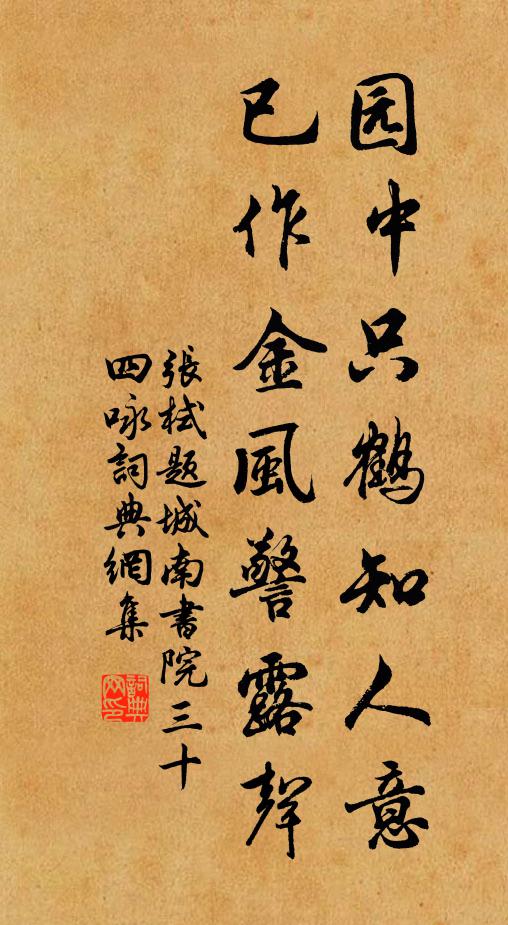 园中只鹤知人意
已作金风警露声
張栻题城南書院三十
四咏詞典網集
詞典
网印